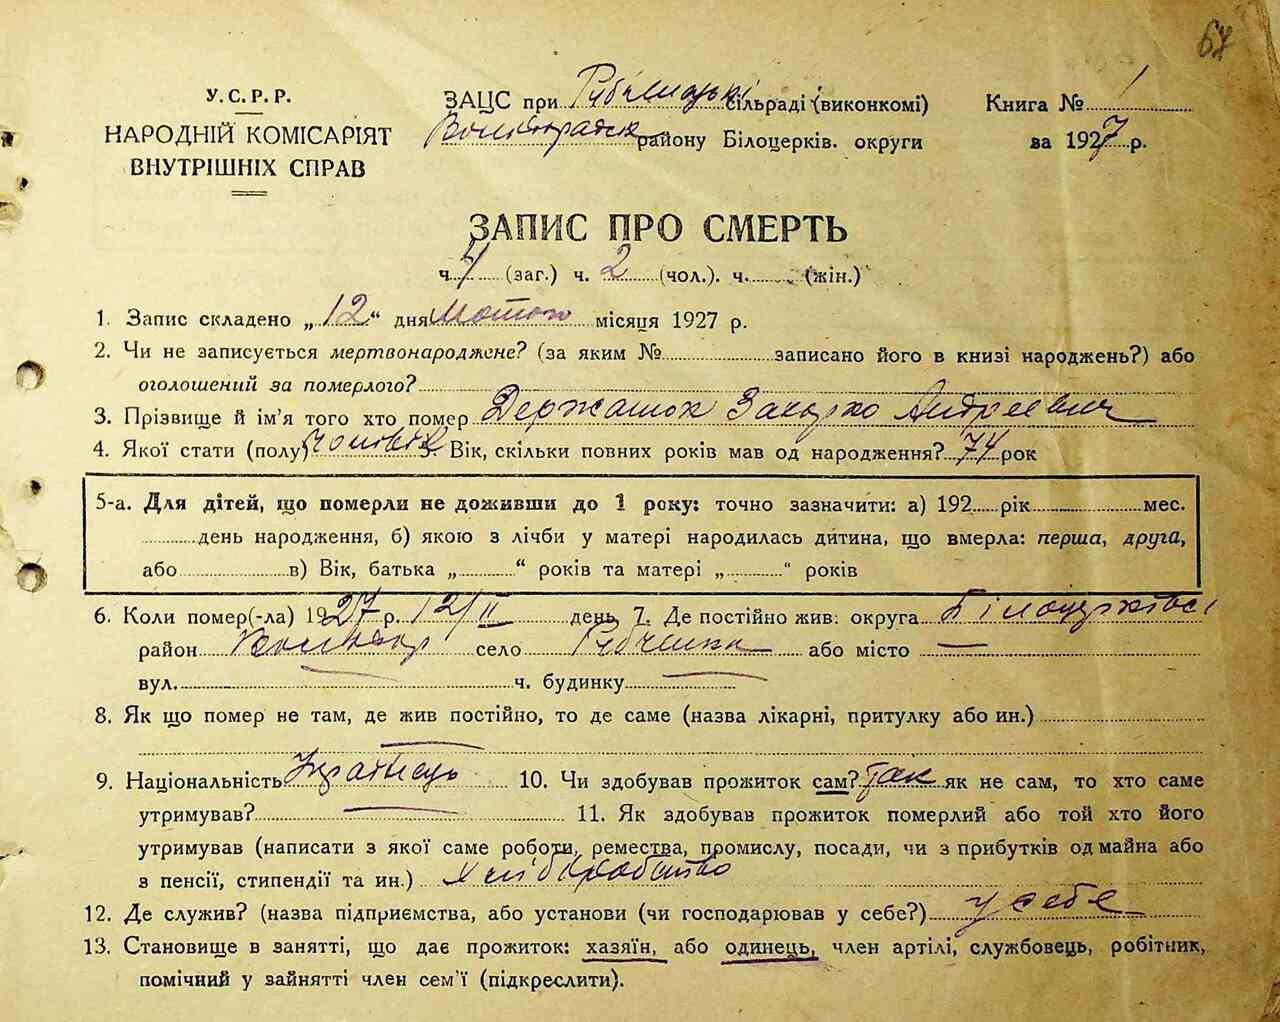 67
У.С.Р.Р.
НАРОДНІЙ КОМІСАРІЯТ
ВНУТРІШНІХ СПРАВ
ЗАЦС при сільраді (виконкомі)
району Білоцерків. округи
Книга № 1
за 1927 р.
ЗАПИС ПРО СМЕРТЬ
ч. 4 (заг.) ч. 2 (чол.). ч. (жін.)
1. Запис складено „12“ дня Лютого місяця 1927 р.
2. Чи не записується мертвонароджене? (за яким № записано його в книзі народжень?) або
оголошений за померлого?
3. Прізвище й ім'я того хто помер Захарко Андреевич
4. Якої стати (полу) чоловік Вік, скільки повних років мав од народження? 74 рок
5-а. Для дітей, що померли не доживши до 1 року: точно зазначити: а) 192 рік мес.
день народження, б) якою з лічби у матері народилась дитина, що вмерла: перша, друга,
або в) Вік, батька „ “ років та матері „ “ років
6. Коли помер(-ла) 1927 р. 12/II день 7. Де постійно жив: округа Білоцрківсі
район село або місто —
вул. ч. будинку
8. Як що помер не там, де жив постійно, то де саме (назва лікарні, притулку або ин.)
9. Національність Українець 10. Чи здобував прожиток сам? так як не сам, то хто саме
утримував? 11. Як здобував прожиток померлий або той хто його
утримував (написати з якої саме роботи, ремества, промислу, посади, чи з прибутків од майна або
з пенсії, стипендії та ин.) Хліборобство
12. Де служив? (назва підприємства, або установи (чи господарював у себе?) у себе
13. Становище в занятті, що дає прожиток: хазяїн, або одинець, член артілі, службовець, робітник,
помічний у зайнятті член сем'ї (підкреслити).